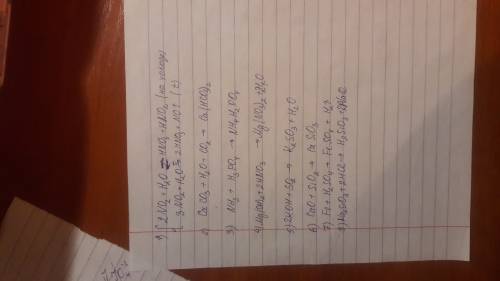 1) { 2NO₂ + H₂O ⇌ HNO₃ + HNO₂ (на холоде)
3NO₂ + H₂O = 2HNO₃ + NO↑ (t)
2) CaCO₃ + H₂O + CO₂ → Ca(HCO₃)₂
3) NH₃ + H₃PO₄ → NH₄H₂PO₄
4) Mg(OH)₂ + 2HNO₃ → Mg(NO₃)₂ + 2H₂O
5) 2KOH + SO₂ → K₂SO₃ + H₂O
6) CaO + SiO₂ → CaSiO₃
7) Fe + H₂SO₄ → FeSO₄ + H₂↑
8) Na₂SiO₃ + 2HCl → H₂SiO₃